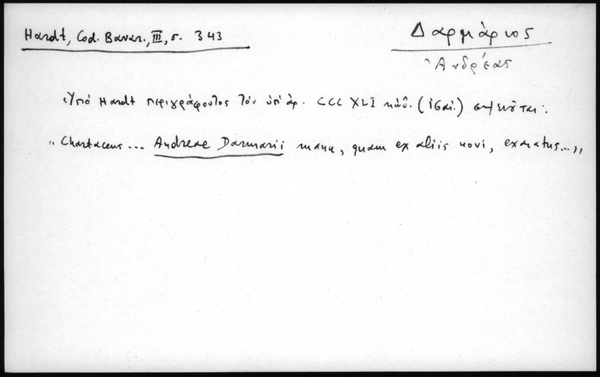 Hardt, Cod. Bavar., III, σ. 343
Δαρμάριος
Ἀνδρέας
Ὑπὸ Hardt περιγράφοντος τὸν ὑπ' ἀρ. CCCXLI κώδ. (ἰδαί.) σημειοῦται:
"Chartaceus... Andreae Darmarii manu, quam ex aliis novi, exaratus..."